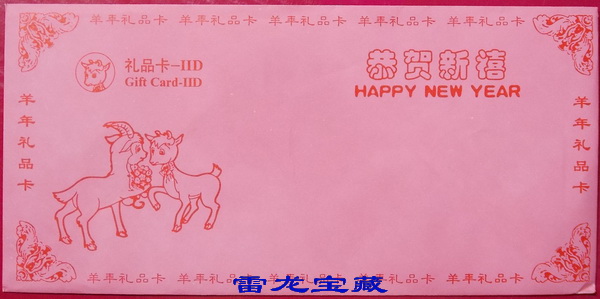 羊年礼品卡 羊年礼品卡 羊年礼品卡 羊年礼品卡
礼品卡-IID
Gift Card-IID
恭贺新禧
HAPPY NEW YEAR
羊年礼品卡
羊年礼品卡
羊年礼品卡 羊年礼品卡 羊年礼品卡 羊年礼品卡
雷龙宝藏